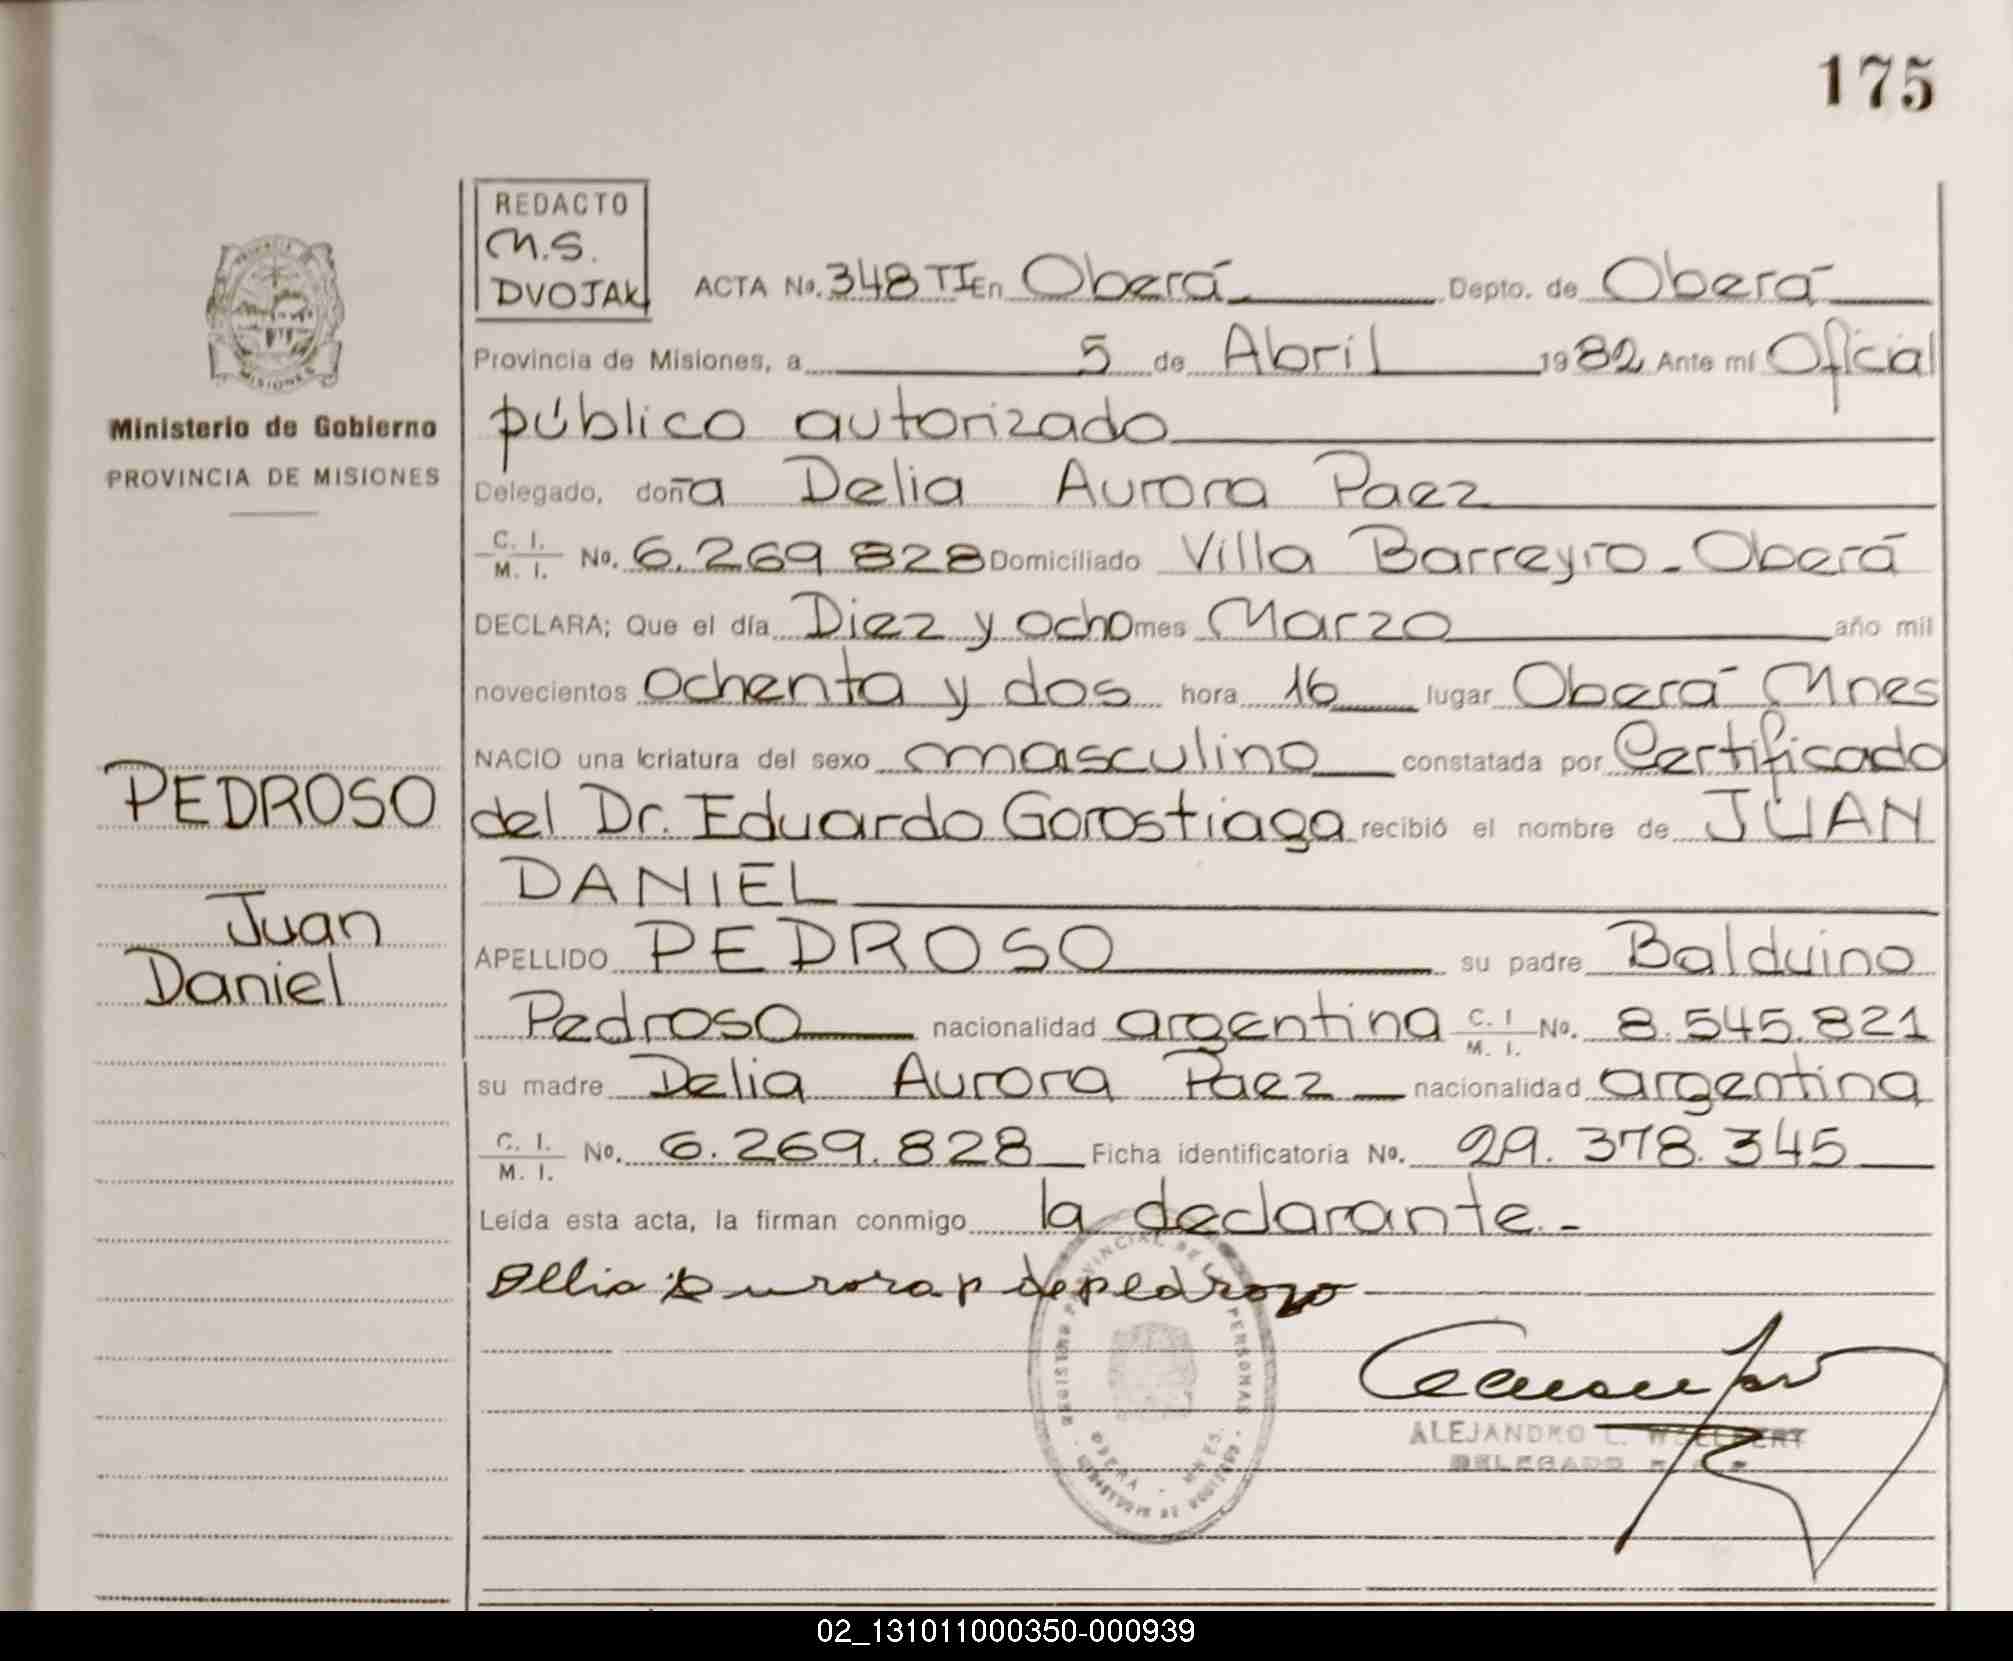 175
REDACTO
M.S.
DVOJAK
ACTA No. 348 TI En Oberá Depto. de Oberá
Provincia de Misiones, a 5 de Abril 1982 Ante mí Oficial
público autorizado
Delegado, doña Delia Aurora Paez
C. I. / M. I. No. 6.269 828 Domiciliado Villa Barreyro - Oberá
DECLARA; Que el día Diez y ocho mes Marzo año mil
novecientos ochenta y dos hora 16 lugar Oberá Mnes
NACIO una criatura del sexo masculino constatada por Certificado
del Dr. Eduardo Gorostiaga recibió el nombre de JUAN
DANIEL
APELLIDO PEDROSO su padre Balduino
Pedroso nacionalidad argentina C. I / M. I. No. 8.545.821
su madre Delia Aurora Paez nacionalidad argentina
C. I. / M. I. No. 6.269.828 Ficha identificatoria No. 29.378.345
Leída esta acta, la firman conmigo la declarante.-
Aurora p de pedrozo
ALEJANDRO L.
DELEGADO
PROVINCIAL DE PERSONAS
OBERA - MNES.
PROVINCIA
MISIONES
Ministerio de Gobierno
PROVINCIA DE MISIONES
PEDROSO
Juan
Daniel
02_131011000350-000939